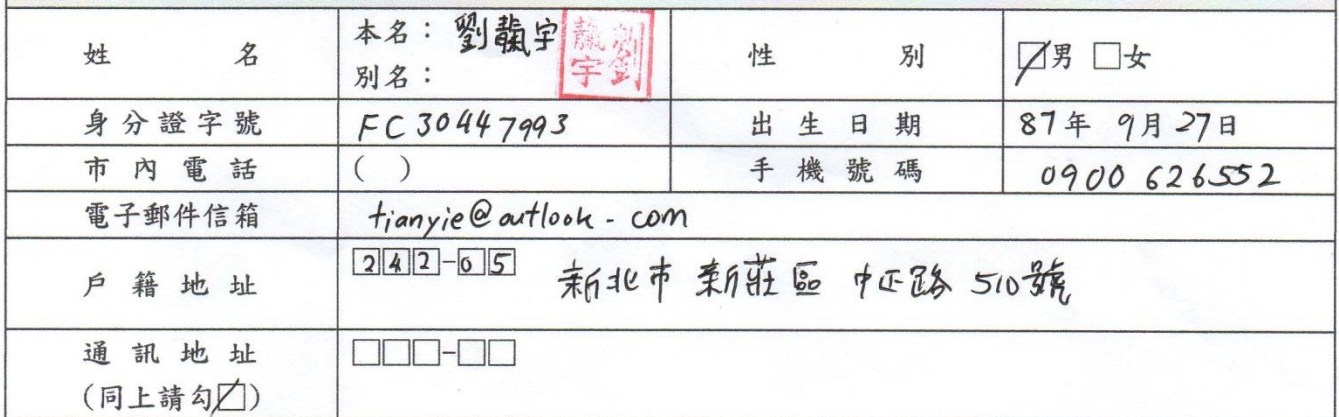 姓名 本名：劉靝宇 性別 ☑男 □女
別名：
靝宇劉
身分證字號 FC30447993 出生日期 87年 9月27日
市內電話 ( ) 手機號碼 0900 626552
電子郵件信箱 tianyie@outlook.com
戶籍地址 242-05 新北市 新莊區 中正路 510號
通訊地址 □□□-□□
(同上請勾☑)